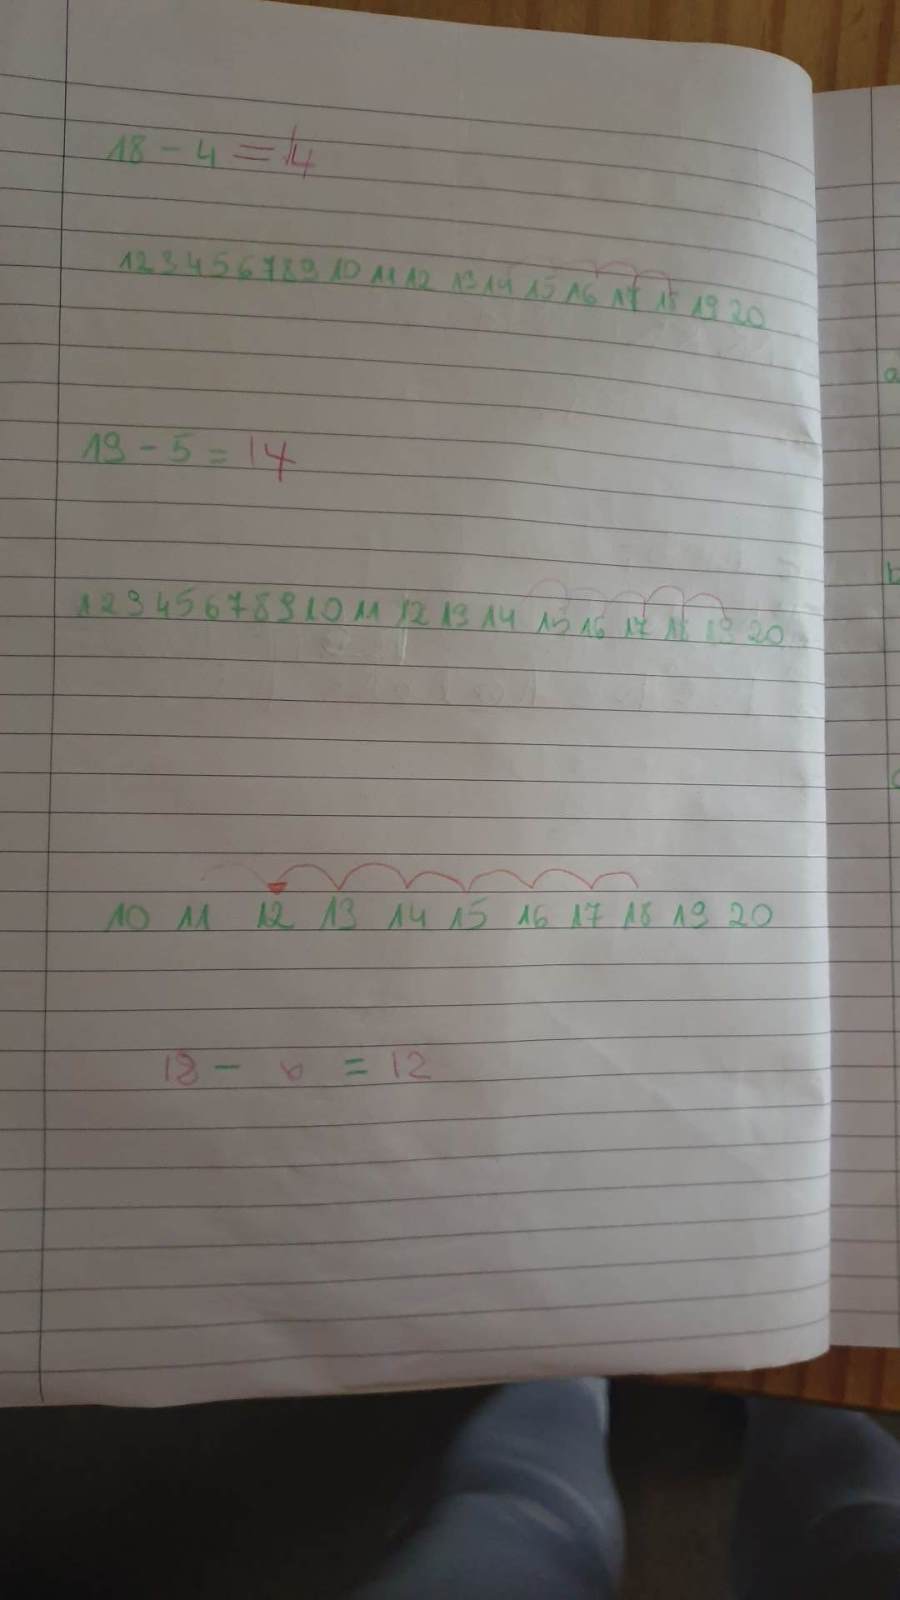 18 - 4 = 14
1 2 3 4 5 6 7 8 9 10 11 12 13 14 15 16 17 18 19 20
19 - 5 = 14
1 2 3 4 5 6 7 8 9 10 11 12 13 14 15 16 17 18 19 20
10 11 12 13 14 15 16 17 18 19 20
18 - 6 = 12
a
b
c